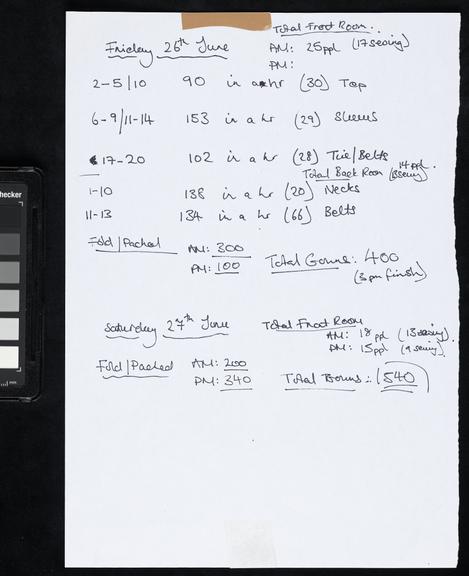 Total Front Room.
Friday 26th June AM: 25ppl (17 sewing)
PM:
2-5/10 90 in a hr (30) Top
6-9/11-14 153 in a hr (29) Sleeves
17-20 102 in a hr (28) Tie/Belts
Total Back Room 14ppl. (8 sewing)
1-10 138 in a hr (20) Necks
11-13 134 in a hr (66) Belts
Fold/Packed AM: 300
PM: 100 Total Gowns: 400
(3pm finish)
Saturday 27th June Total Front Room
AM: 18ppl (13 sewing).
PM: 15ppl (9 sewing)
Fold/Packed AM: 200
PM: 340 Total Gowns: 540
checker